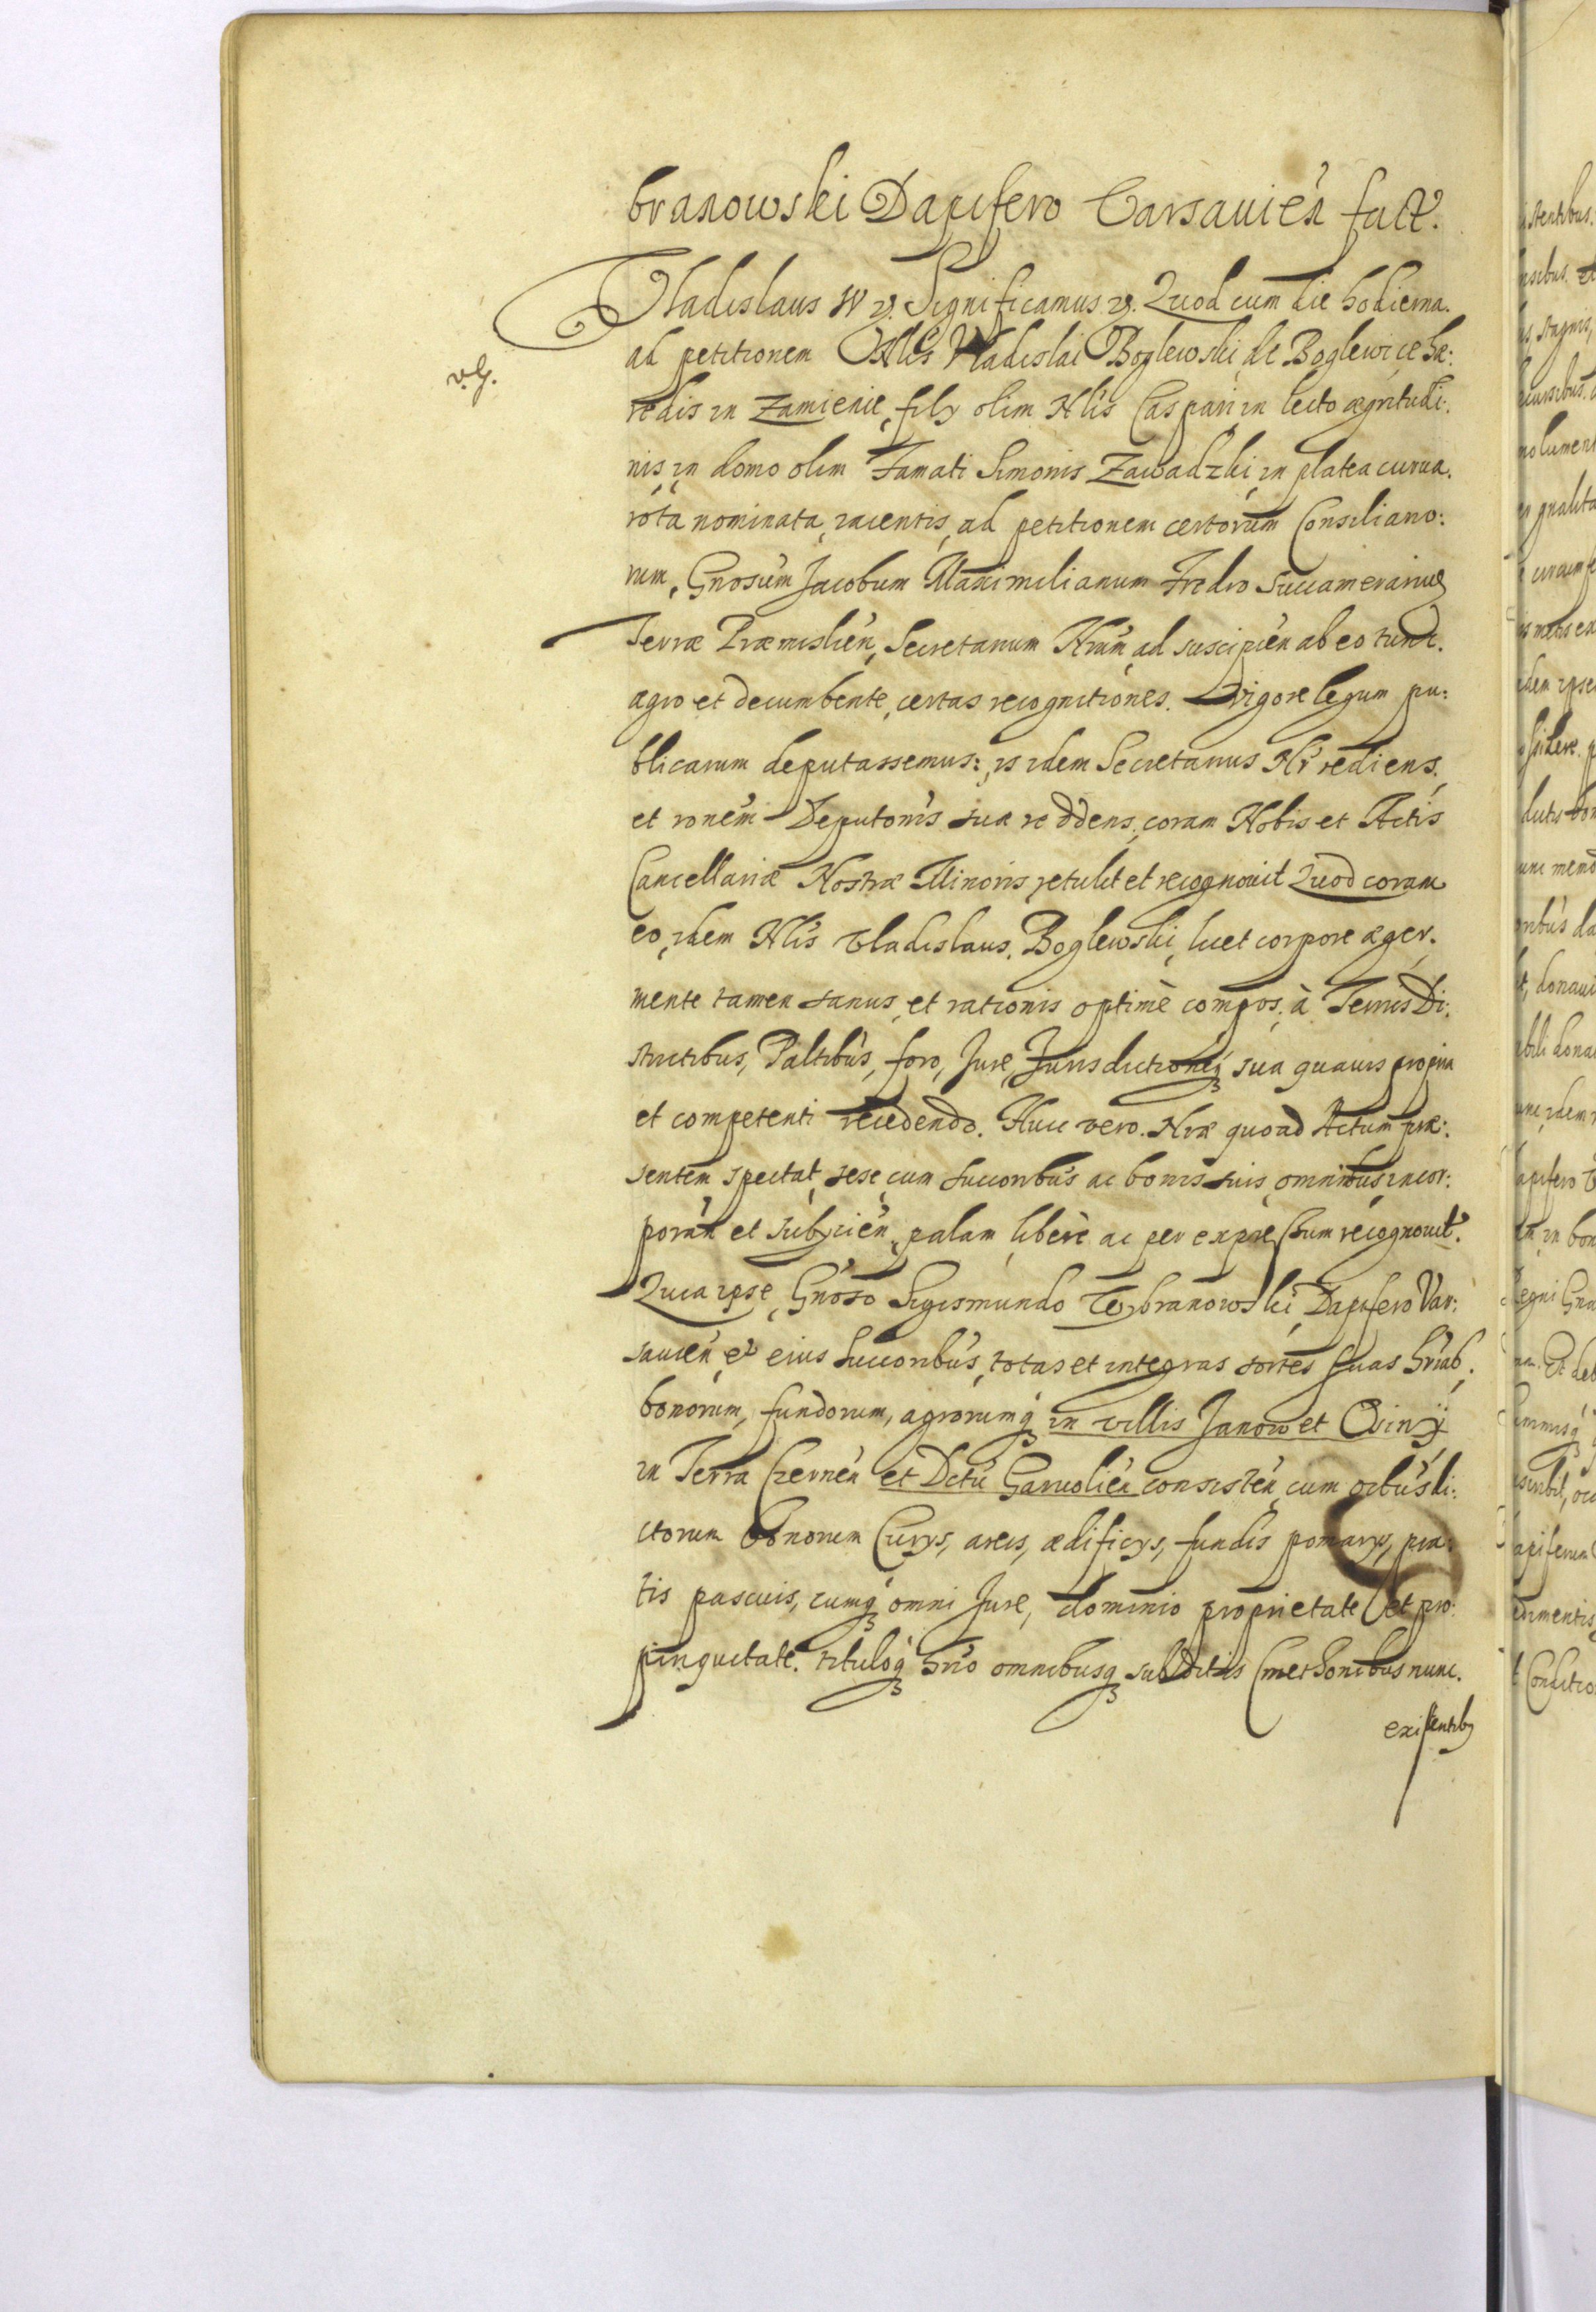 branowski Dapifero Varsavień fact.
Vladislaus IV etc. Significamus etc. Quod cum die hodierna
ad petitionem Nlis Vladislai Boglewski de Boglewice hæ:
v. G.
redis in Zamienie, filÿ olim Nlis Caspari in lecto ægritudi:
nis, in domo olim Famati Simonis Zawadzki, in platea curua
rota nominata, iacentis, ad petitionem certorum Consiliario:
rum, Gnosum Jacobum Maximilianum Fredro Succamerarium
Terræ Præmislień, Secretarium Nrum, ad suscipień ab eo tunc
ægro et decumbente, certas recognitiones. Vigore legum pu:
blicarum deputassemus: is idem Secretarius Nr rediens,
et ronem Deputonis suæ reddens, coram Nobis et Actis
Cancellariæ Nostræ Minoris retulit et recognouit Quod coram
eo, idem Nlis Vladislaus Boglewski, licet corpore æger,
mente tamen sanus, et rationis optimè compos, à Terris Di:
strictibus, Paltibus, foro, Jure, Jurisdictioneq sua quauis propria
et competenti recedendo. Huic vero Nræ quoad Actum præ:
sentem spectat, sese, cum succoribus ac bonis suis omnibus incor:
porań et subÿcień, palam liberè ac per expressum recognouit.
Quia ipse, Gnoso Sigismundo Wÿbranowski Dapifero Var:
savień et eius Succoribus, totas et integras sortes suas hriab:
bonorum, fundorum, agrorumq in villis Janow et Osinÿ
in Terra Czerneń et Dctu Garwolień consisteń, cum oibus di:
ctorum Bonorum Curÿs, areis, ædificÿs, fundis pomarÿs, pra:
tis pascuis, cumq omni Jure, dominio proprietate et pro:
pinquitate, tituloq hrio omnibusq subditis Cmethonibus nunc
existentib9